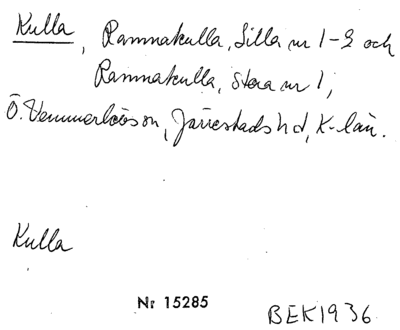 Kulla, Rammakulla, Lilla nr 1-2 och
Rammakulla, Stora nr 1,
Ö. Vemmerlövs sn, Järrestads hd, K-län.
Kulla
Nr 15285
BEK1936